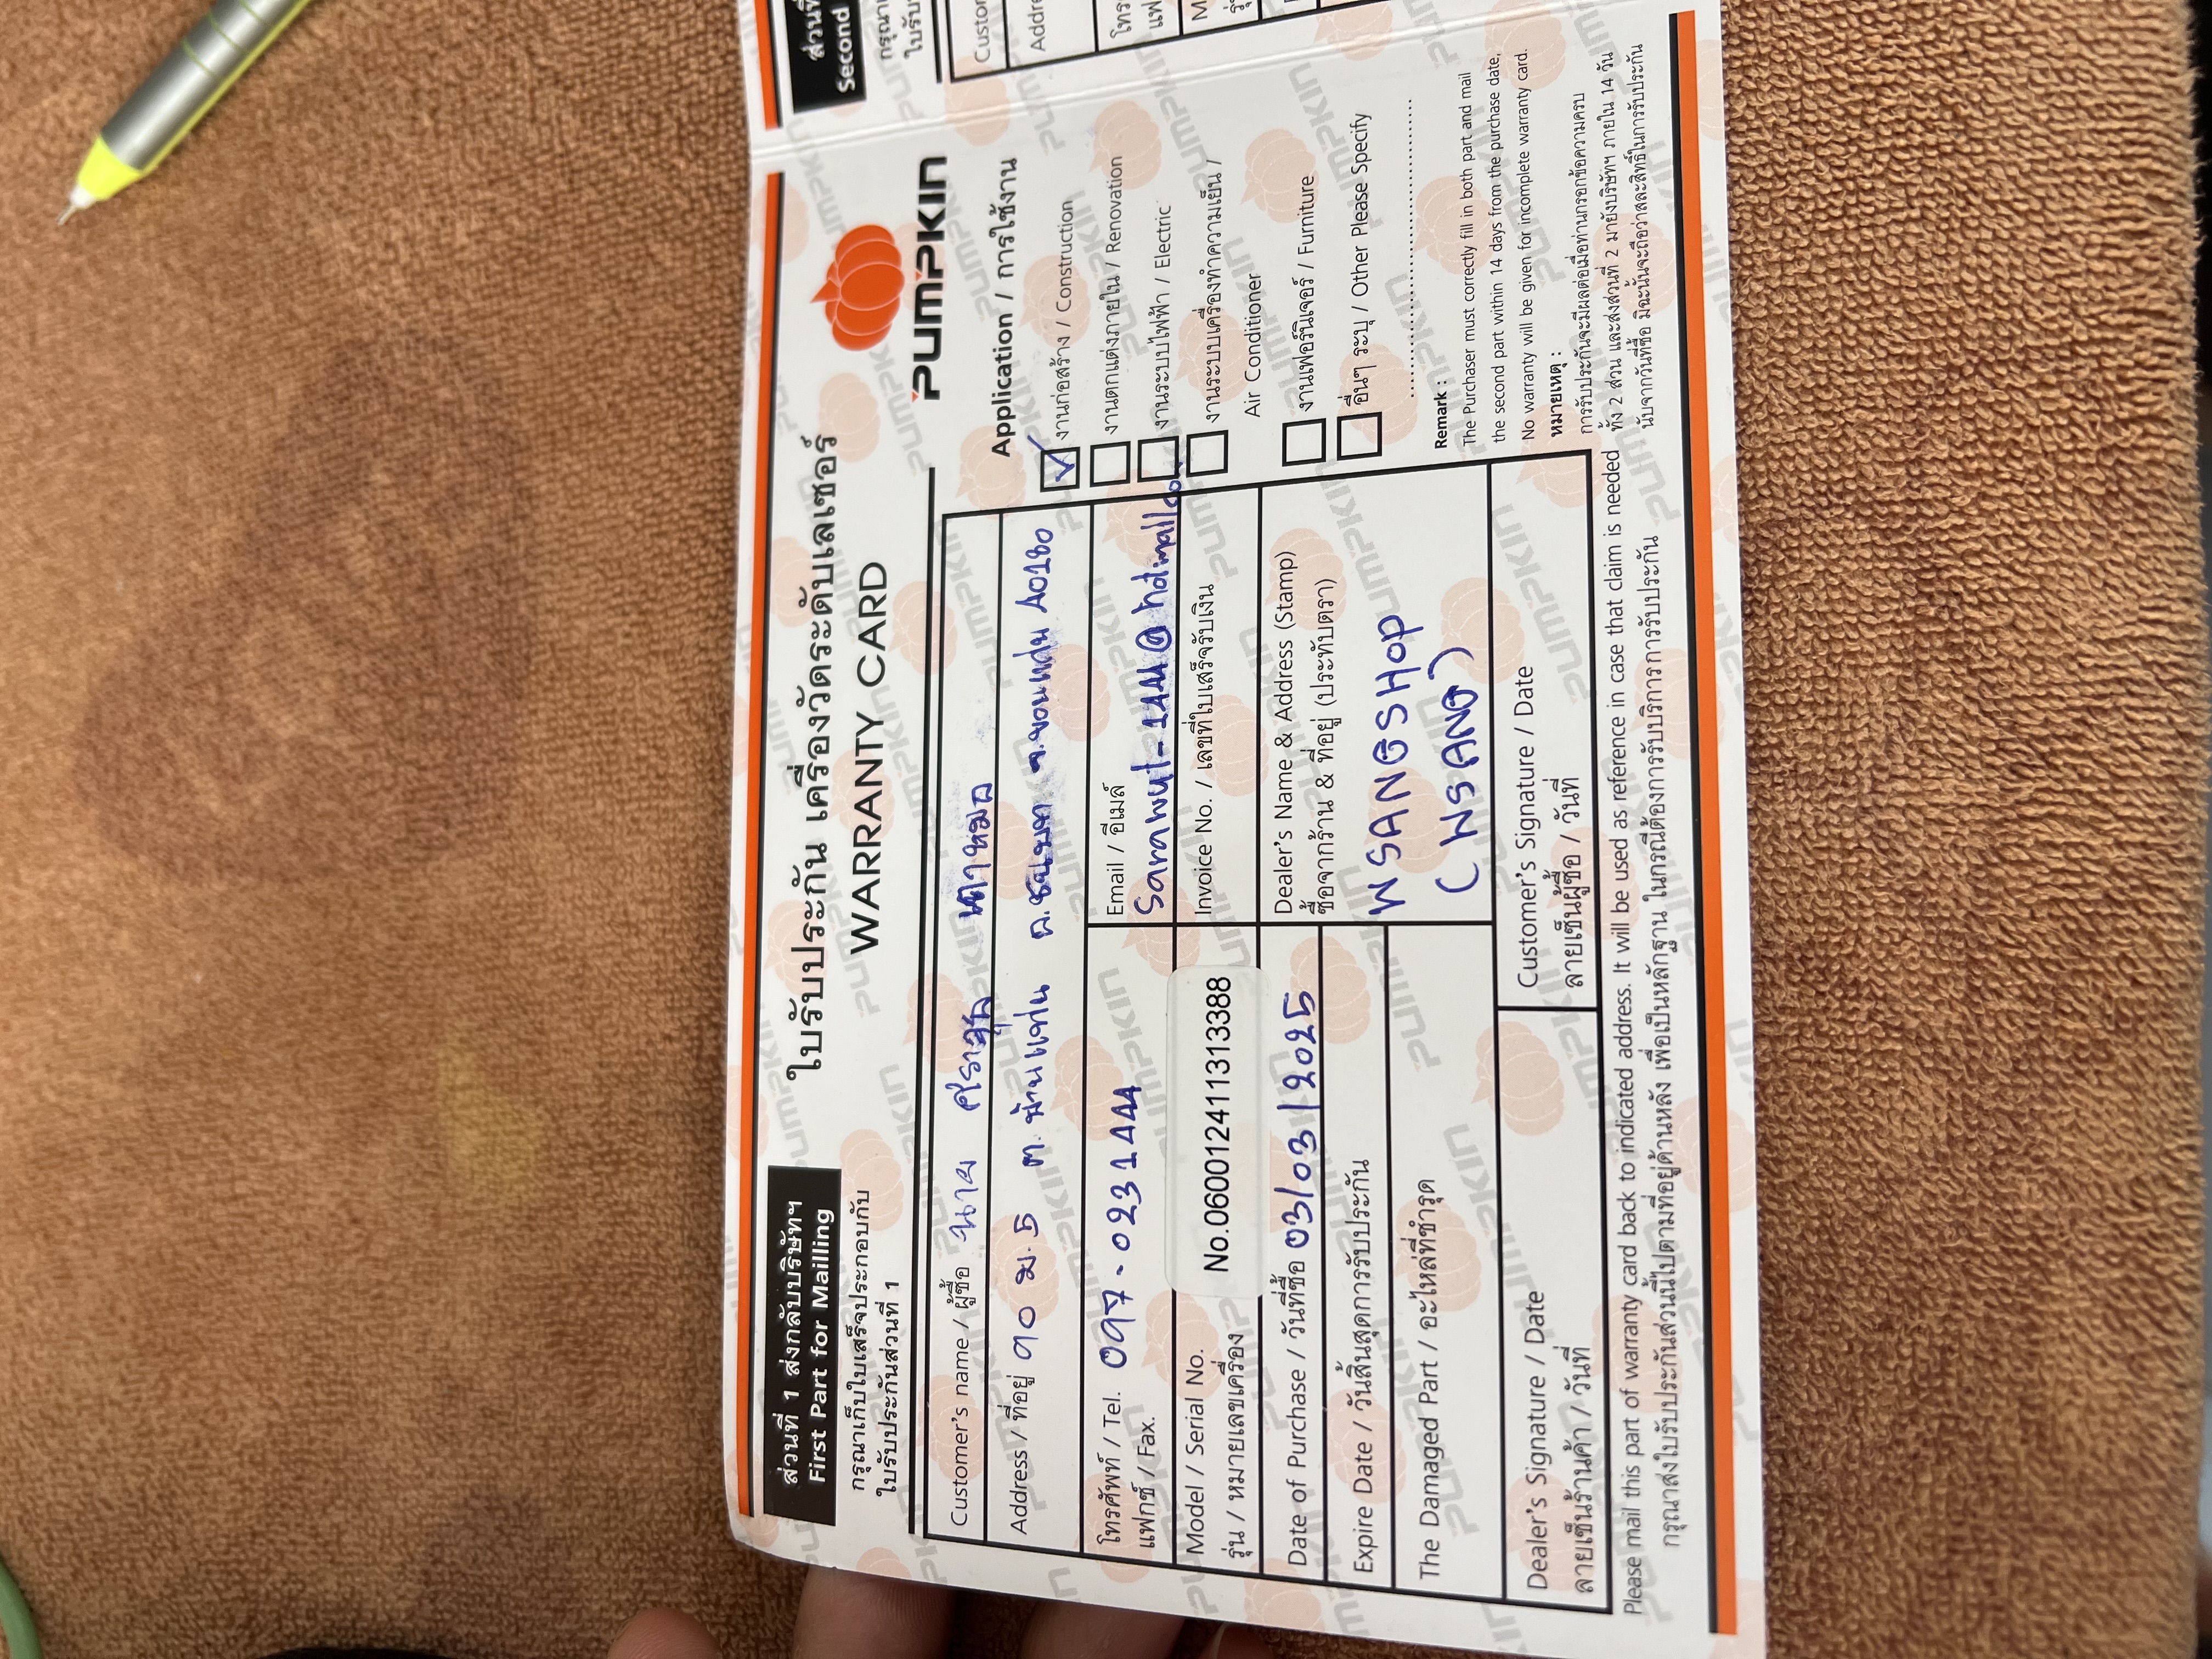 ส่วนที่ 1 ส่งกลับบริษัทฯ
First Part for Mailling
กรุณาเก็บใบเสร็จประกอบกับ
ใบรับประกันส่วนที่ 1
ใบรับประกัน เครื่องวัดระดับเลเซอร์
WARRANTY CARD
PUMPKIN
Customer's name / ผู้ซื้อ นาย ศราวุฒิ
Address / ที่อยู่ 90 ม.5 ต.บ้านแท่น อ.ชนบท จ.ขอนแก่น 40180
โทรศัพท์ / Tel. 097-0231444
แฟกซ์ / Fax.
Email / อีเมล์
Sarawut-1441@hotmail.com
Model / Serial No.
รุ่น / หมายเลขเครื่อง
No.060012411313388
Invoice No. / เลขที่ใบเสร็จรับเงิน
Date of Purchase / วันที่ซื้อ 03/03/2025
Expire Date / วันสิ้นสุดการรับประกัน
The Damaged Part / อะไหล่ที่ชำรุด
Dealer's Name & Address (Stamp)
ซื้อจากร้าน & ที่อยู่ (ประทับตรา)
WSANGSHOP
(WSANG)
Dealer's Signature / Date
ลายเซ็นร้านค้า / วันที่
Customer's Signature / Date
ลายเซ็นผู้ซื้อ / วันที่
Application / การใช้งาน
งานก่อสร้าง / Construction
งานตกแต่งภายใน / Renovation
งานระบบไฟฟ้า / Electric
งานระบบเครื่องทำความเย็น /
Air Conditioner
งานเฟอร์นิเจอร์ / Furniture
อื่นๆ ระบุ / Other Please Specify
Remark :
The Purchaser must correctly fill in both part and mail
the second part within 14 days from the purchase date,
No warranty will be given for incomplete warranty card.
หมายเหตุ :
การรับประกันจะมีผลต่อเมื่อท่านกรอกข้อความครบ
ทั้ง 2 ส่วน และส่งส่วนที่ 2 มายังบริษัทฯ ภายใน 14 วัน
นับจากวันที่ซื้อ มิฉะนั้นจะถือว่าสละสิทธิ์ในการรับประกัน
Please mail this part of warranty card back to indicated address. It will be used as reference in case that claim is needed
กรุณาส่งใบรับประกันส่วนนี้ไปตามที่อยู่ด้านหลัง เพื่อเป็นหลักฐาน ในกรณีต้องการรับบริการการรับประกัน
ส่วนที่
Second